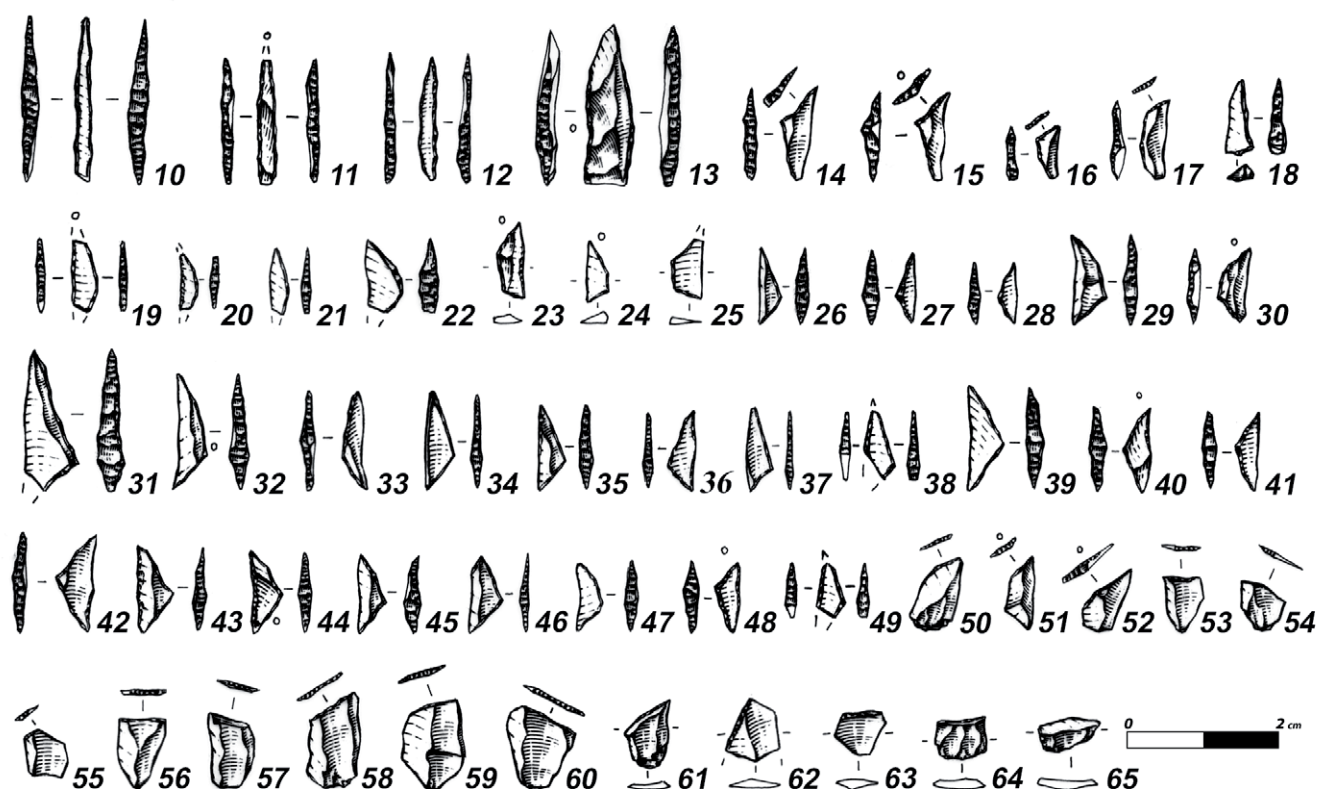 10 11 12 13 14 15 16 17 18
19 20 21 22 23 24 25 26 27 28 29 30
31 32 33 34 35 36 37 38 39 40 41
42 43 44 45 46 47 48 49 50 51 52 53 54
0 2 cm
55 56 57 58 59 60 61 62 63 64 65